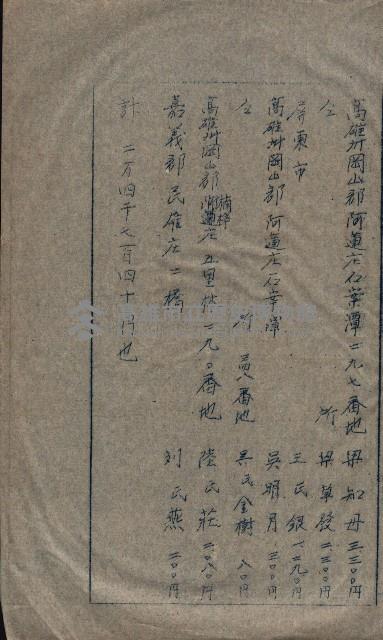 高雄州岡山郡阿蓮庄石案潭二九七番地 梁知母 三三〇〇円
仝 所 梁草發 二三〇〇円
屏東市 王氏銀 一二九〇円
高雄州岡山郡阿蓮庄石案潭 吳明月 三〇〇円
仝 所 二四八番地 吳氏金樹 八〇円
高雄州岡山郡楠梓庄五里林二九〇番地 陸氏莊 二〇八〇円
嘉義郡民雄庄二橋 刘氏燕 二〇〇円
計 二万四千七百四十円也